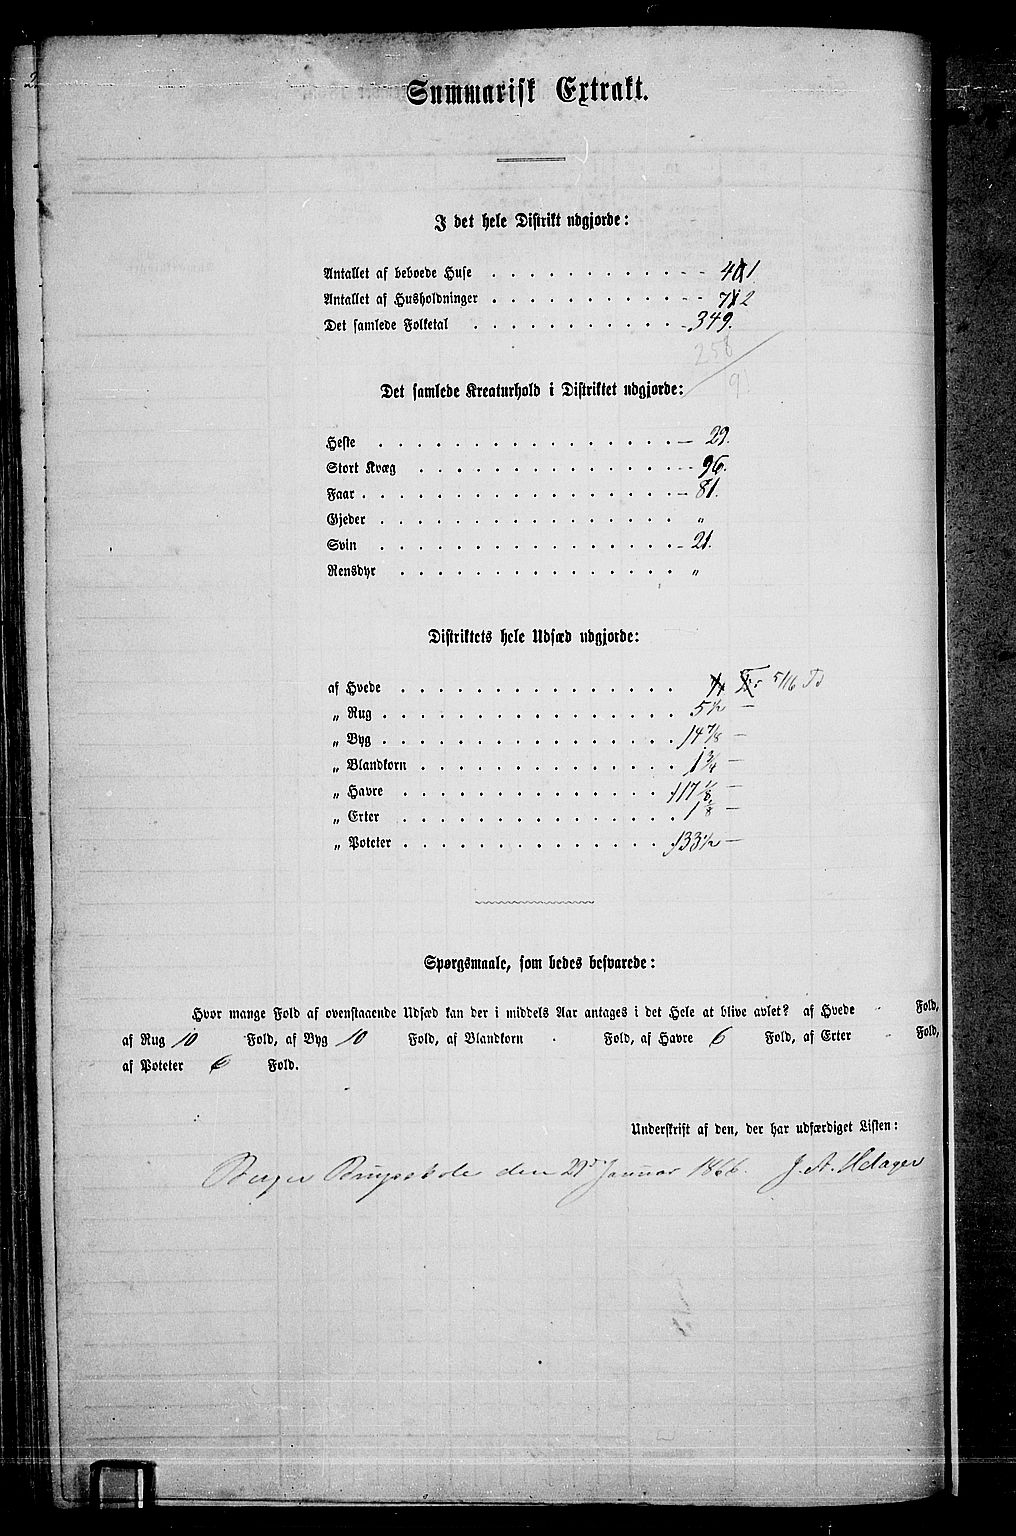 Summarisk Extrakt.
I det hele Distrikt udgjorde:
Antallet af beboede Huse 41
Antallet af Husholdninger 72
Det samlede Folketal 349.
258
91
Det samlede Kreaturhold i Distriktet udgjorde:
Heste 29.
Stort Kvæg 96.
Faar 81.
Gjeder „
Svin 21.
Rensdyr „
Distriktets hele Udsæd udgjorde:
af Hvede 5/16 Td
„ Rug 5 1/2 —
„ Byg 14 7/8 —
„ Blandkorn 1 3/4 —
„ Havre 117 1/8 —
„ Erter 1/8 —
„ Poteter 133 1/2 —
Spørgsmaale, som bedes besvarede:
Hvor mange Fold af ovenstaaende Udsæd kan der i middels Aar antages i det Hele at blive avlet? af Hvede - Fold,
af Rug 10 Fold, af Byg 10 Fold, af Blandkorn - Fold, af Havre 6 Fold, af Erter - Fold,
af Poteter 6 Fold.
Underskrift af den, der har udfærdiget Listen:
Berger den Januar 1866. J. A. Helager